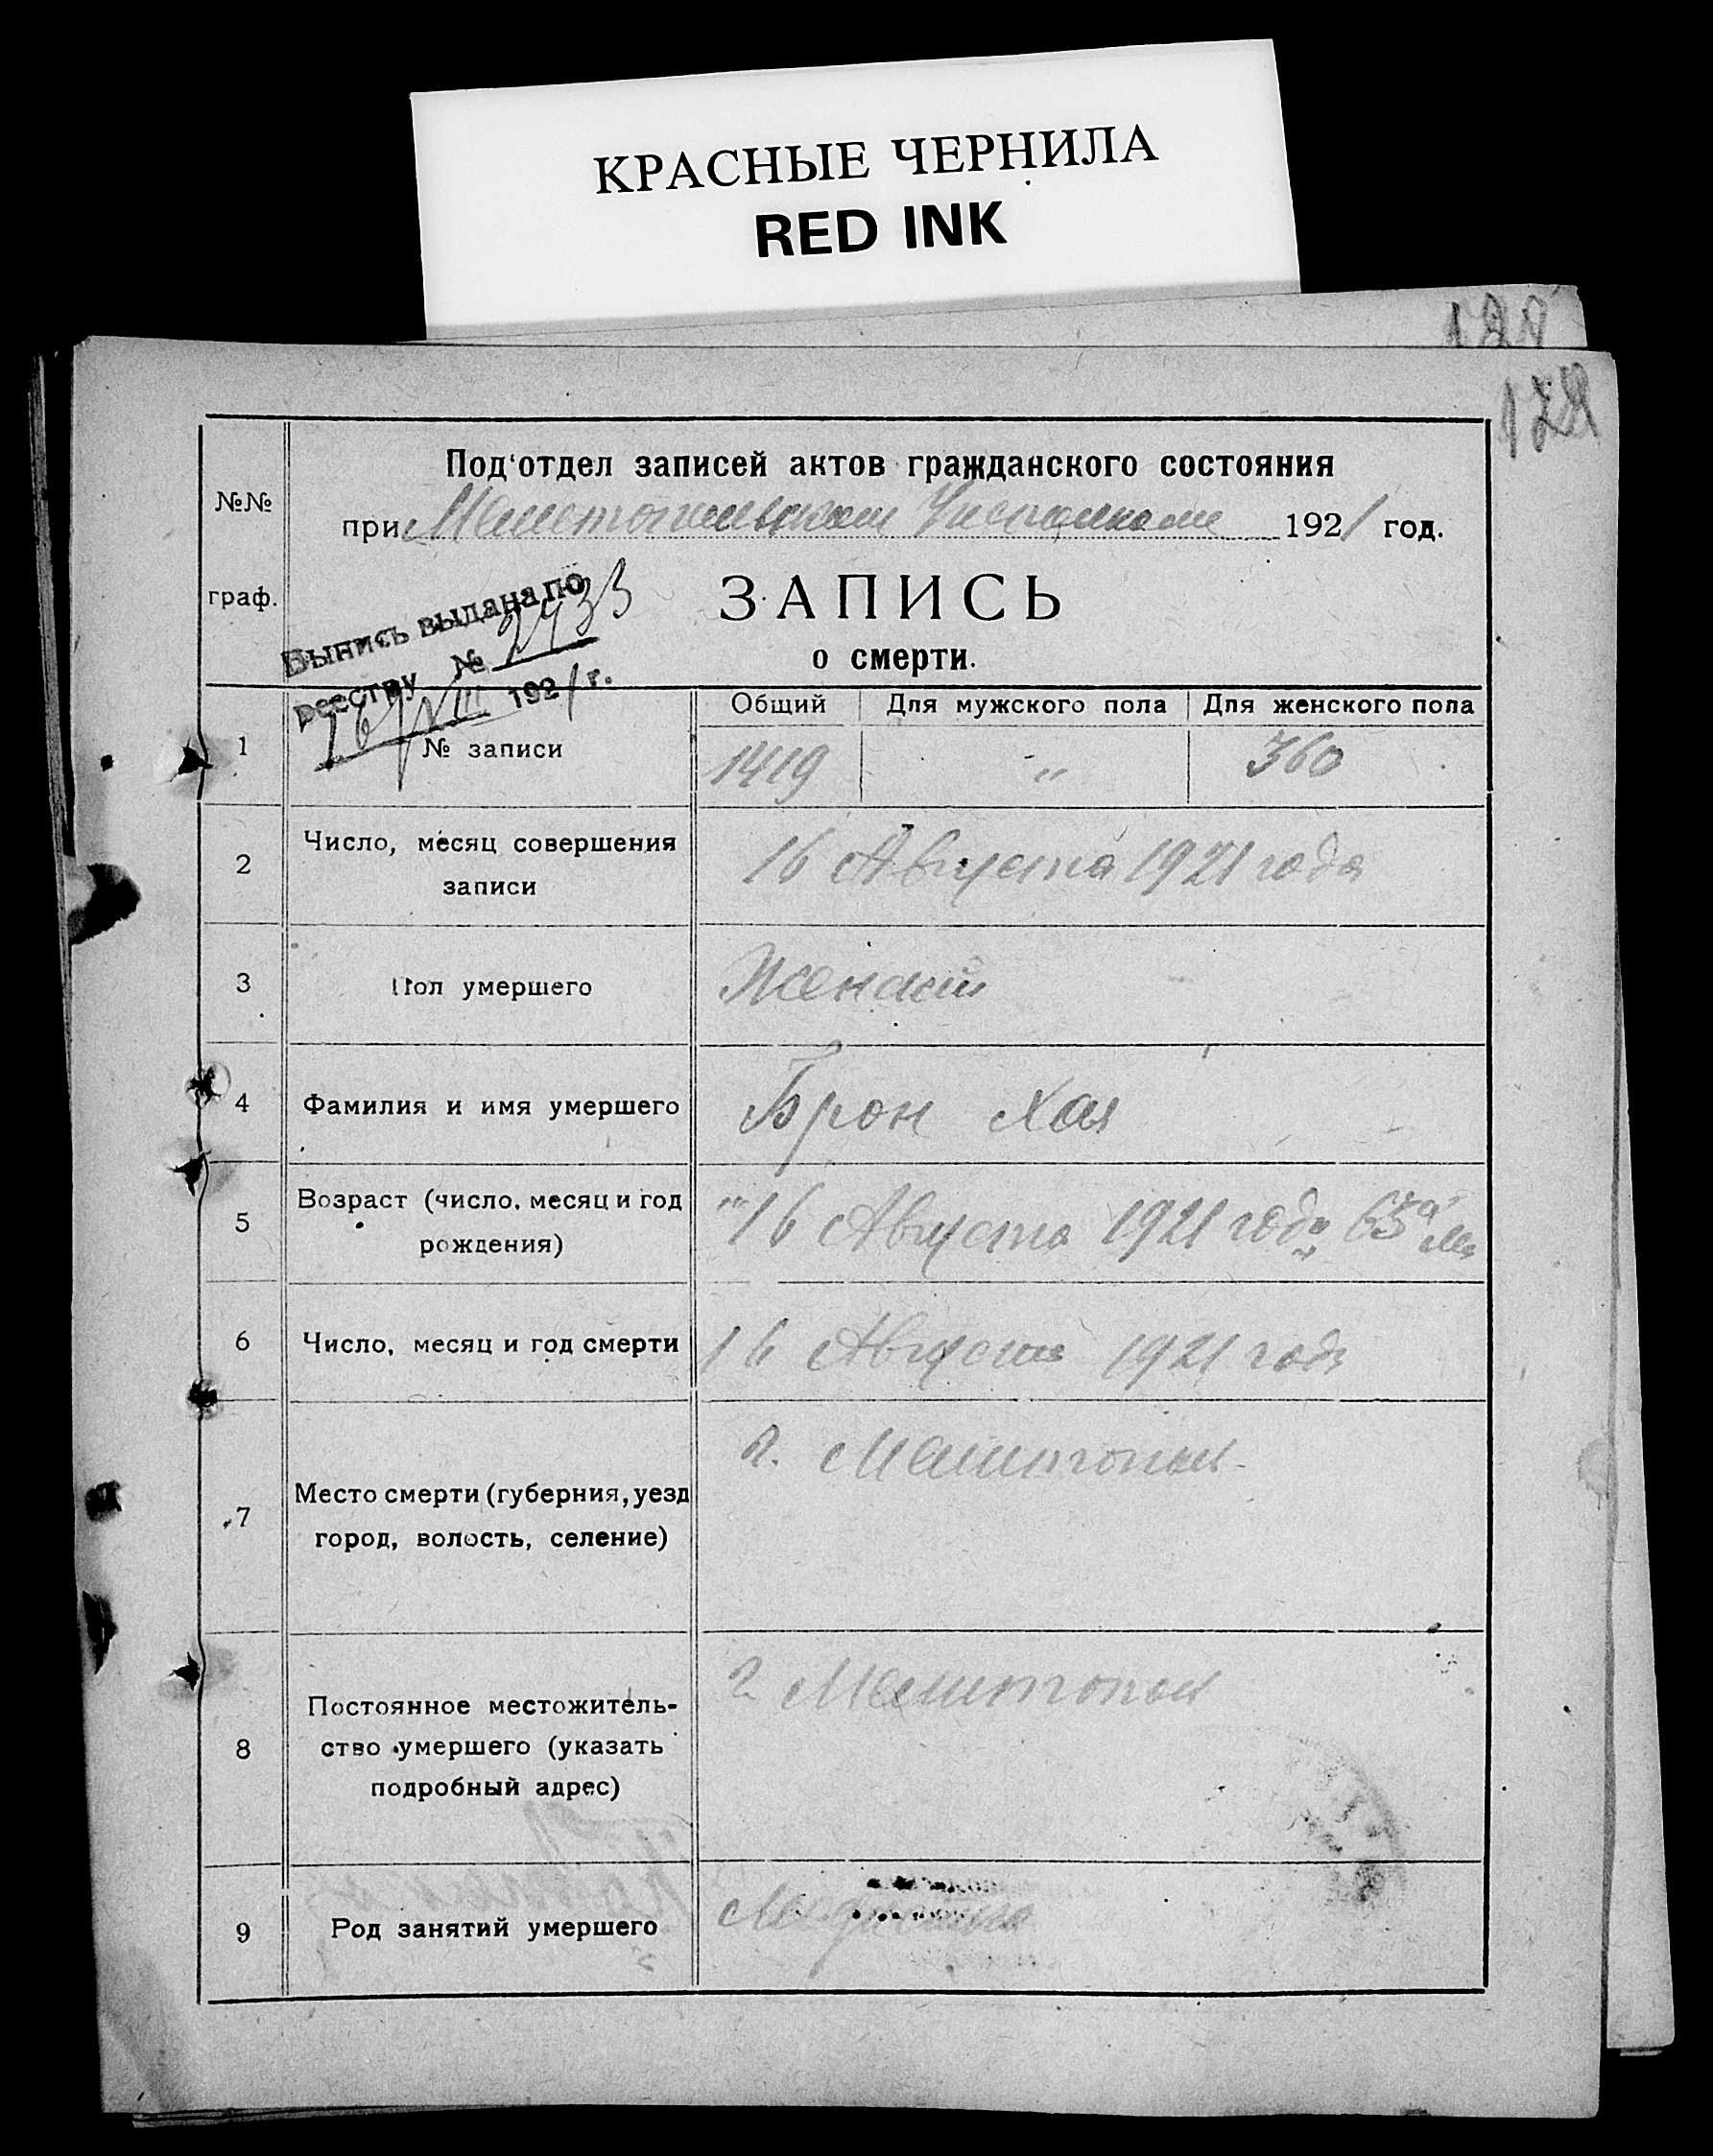 КРАСНЫЕ ЧЕРНИЛА
RED INK
Под'отдел записей актов гражданского состояния
№№
при Мелитопольском 1921 год.
граф.
ЗАПИСЬ
о смерти.
Выпись выдана по
реестру № 2433
16/VIII 1921 г.
Общий Для мужского пола Для женского пола
1 № записи 1419 " 360
2 Число, месяц совершения
записи
16 Августа 1921 года
3 Пол умершего Женский
4 Фамилия и имя умершего Брон Хая
5 Возраст (число, месяц и год
рождения)
16 Августа 1921 года 65
6 Число, месяц и год смерти 16 Августа 1921 года
7 Место смерти (губерния, уезд
город, волость, селение)
г. Мелитополь
8 Постоянное местожитель-
ство умершего (указать
подробный адрес)
г. Мелитополь
9 Род занятий умершего